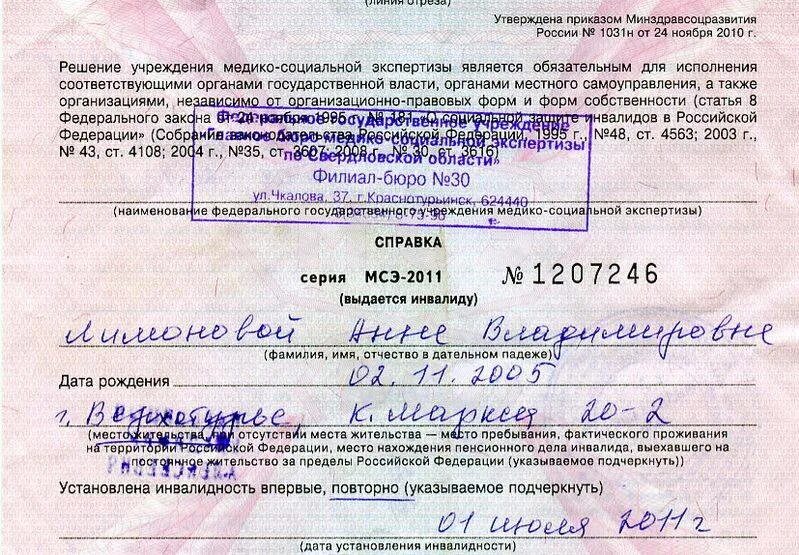 (линия отреза)
Утверждена приказом Минздравсоцразвития
России № 1031н от 24 ноября 2010 г.
Решение учреждения медико-социальной экспертизы является обязательным для исполнения
соответствующими органами государственной власти, органами местного самоуправления, а также
организациями, независимо от организационно-правовых форм и форм собственности (статья 8
Федерального закона от 24 ноября 1995 г. № 181 «О социальной защите инвалидов в Российской
Федерации» (Собрание законодательства Российской Федерации, 1995 г., №48, ст. 4563; 2003 г.,
№ 43, ст. 4108; 2004 г., №35, ст. 3607; 2008 г., № 30, ст. 3616)
Федеральное государственное учреждение
бюро медико-социальной экспертизы
по Свердловской области»
Филиал-бюро №30
ул.Чкалова, 37, г.Краснотурьинск, 624440
(наименование федерального государственного учреждения медико-социальной экспертизы)
СПРАВКА
серия МСЭ-2011 № 1207246
(выдается инвалиду)
Лимоновой Анне Владимировне
(фамилия, имя, отчество в дательном падеже)
Дата рождения 02.11.2005
г. К. Маркса 20-2
(место жительства, при отсутствии места жительства — место пребывания, фактического проживания
на территории Российской Федерации, место нахождения пенсионного дела инвалида, выехавшего на
постоянное жительство за пределы Российской Федерации (указываемое подчеркнуть))
Установлена инвалидность впервые, повторно (указываемое подчеркнуть)
01 июля 2011 г
(дата установления инвалидности)